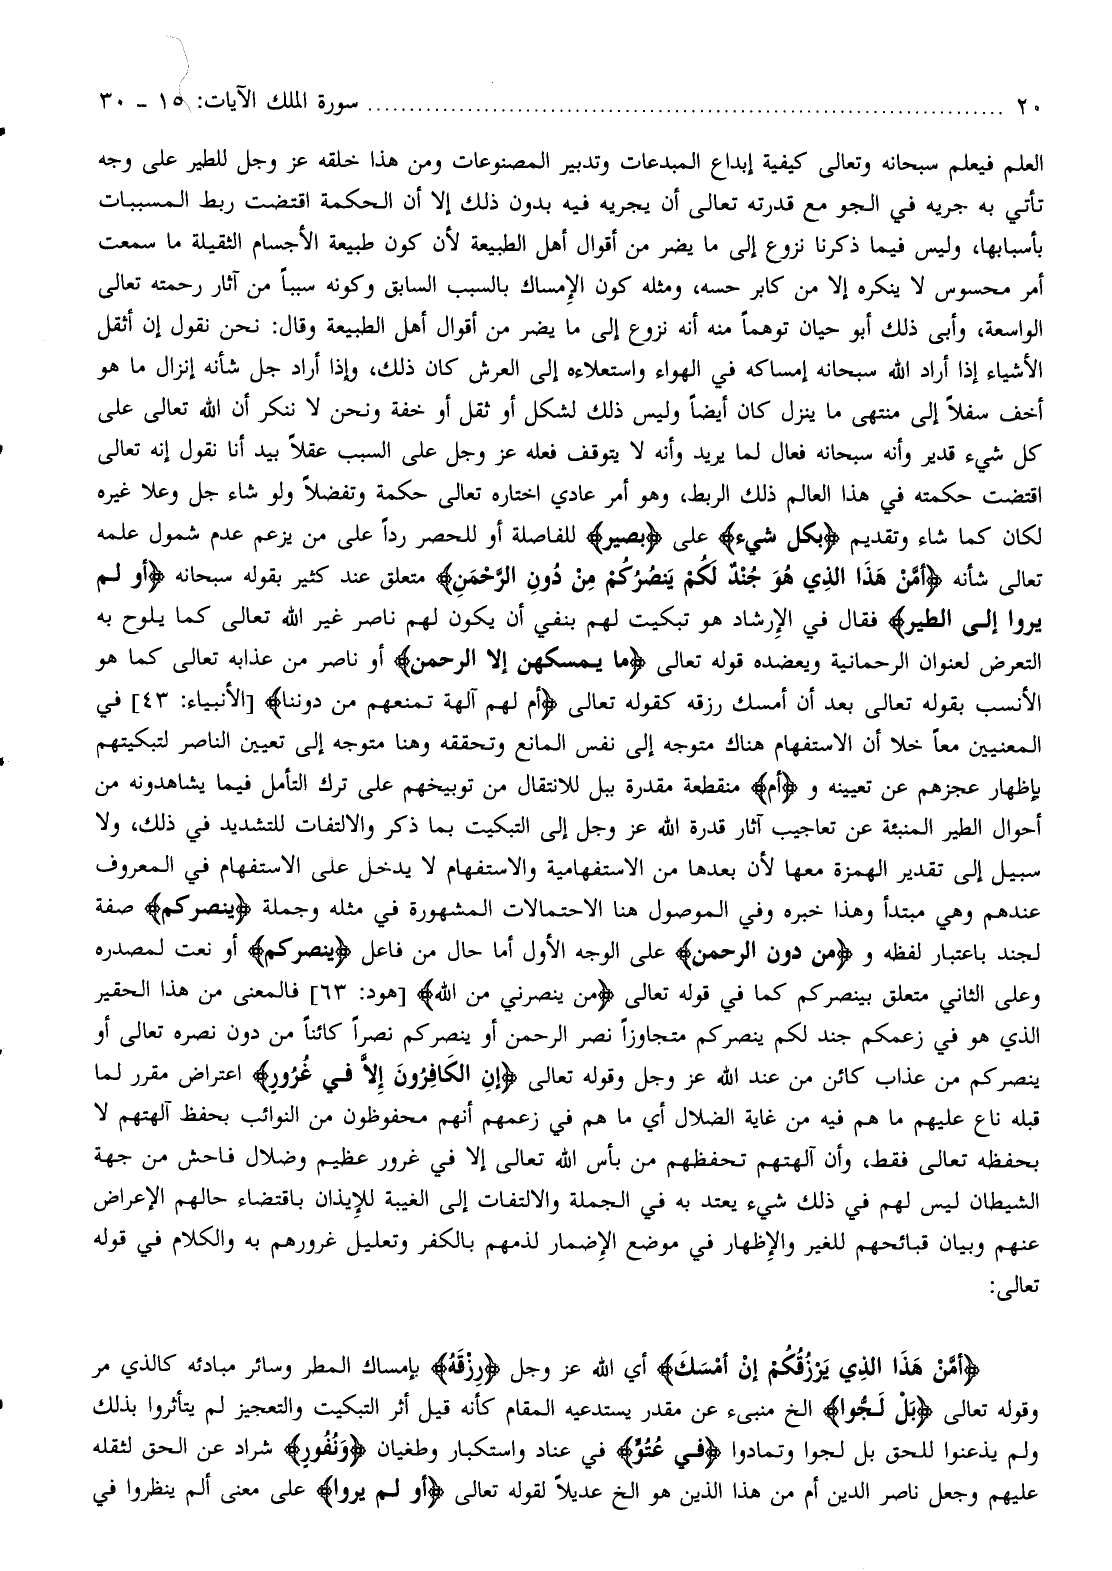 ٢٠ ........ سورة الملك الآيات: ١٥ - ٣٠
العلم فيعلم سبحانه وتعالى كيفية إبداع المبدعات وتدبير المصنوعات ومن هذا خلقه عز وجل للطير على وجه
تأتي به جريه في الجو مع قدرته تعالى أن يجريه فيه بدون ذلك إلا أن الحكمة اقتضت ربط المسببات
بأسبابها، وليس فيما ذكرنا نزوع إلى ما يضر من أقوال أهل الطبيعة لأن كون طبيعة الأجسام الثقيلة ما سمعت
أمر محسوس لا ينكره إلا من كابر حسه، ومثله كون الإمساك بالسبب السابق وكونه سبباً من آثار رحمته تعالى
الواسعة، وأبى ذلك أبو حيان توهماً منه أنه نزوع إلى ما يضر من أقوال أهل الطبيعة وقال: نحن نقول إن أثقل
الأشياء إذا أراد الله سبحانه إمساكه في الهواء واستعلاءه إلى العرش كان ذلك، وإذا أراد جل شأنه إنزال ما هو
أخف سفلاً إلى منتهى ما ينزل كان أيضاً وليس ذلك لشكل أو ثقل أو خفة ونحن لا ننكر أن الله تعالى على
كل شيء قدير وأنه سبحانه فعال لما يريد وأنه لا يتوقف فعله عز وجل على السبب عقلاً بيد أنا نقول إنه تعالى
اقتضت حكمته في هذا العالم ذلك الربط، وهو أمر عادي اختاره تعالى حكمة وتفضلاً ولو شاء جل وعلا غيره
لكان كما شاء وتقديم ﴿بكل شيء﴾ على ﴿بصير﴾ للفاصلة أو للحصر رداً على من يزعم عدم شمول علمه
تعالى شأنه ﴿أَمَّنْ هَذَا الذِي هُوَ جُنْدٌ لَكُمْ يَنصُرُكُمْ مِنْ دُونِ الرَّحْمَنِ﴾ متعلق عند كثير بقوله سبحانه ﴿أو لم
يروا إلى الطير﴾ فقال في الإرشاد هو تبكيت لهم بنفي أن يكون لهم ناصر غير الله تعالى كما يلوح به
التعرض لعنوان الرحمانية ويعضده قوله تعالى ﴿ما يمسكهن إلا الرحمن﴾ أو ناصر من عذابه تعالى كما هو
الأنسب بقوله تعالى بعد أن أمسك رزقه كقوله تعالى ﴿أم لهم آلهة تمنعهم من دوننا﴾ [الأنبياء: ٤٣] في
المعنيين معاً خلا أن الاستفهام هناك متوجه إلى نفس المانع وتحققه وهنا متوجه إلى تعيين الناصر لتبكيتهم
بإظهار عجزهم عن تعيينه و ﴿أم﴾ منقطعة مقدرة ببل للانتقال من توبيخهم على ترك التأمل فيما يشاهدونه من
أحوال الطير المنبئة عن تعاجيب آثار قدرة الله عز وجل إلى التبكيت بما ذكر والالتفات للتشديد في ذلك، ولا
سبيل إلى تقدير الهمزة معها لأن بعدها من الاستفهامية والاستفهام لا يدخل على الاستفهام في المعروف
عندهم وهي مبتدأ وهذا خبره وفي الموصول هنا الاحتمالات المشهورة في مثله وجملة ﴿ينصركم﴾ صفة
لجند باعتبار لفظه و ﴿من دون الرحمن﴾ على الوجه الأول أما حال من فاعل ﴿ينصركم﴾ أو نعت لمصدره
وعلى الثاني متعلق بينصركم كما في قوله تعالى ﴿من ينصرني من الله﴾ [هود: ٦٣] فالمعنى من هذا الحقير
الذي هو في زعمكم جند لكم ينصركم متجاوزاً نصر الرحمن أو ينصركم نصراً كائناً من دون نصره تعالى أو
ينصركم من عذاب كائن من عند الله عز وجل وقوله تعالى ﴿إنِ الكَافِرُونَ إلاَّ في غُرُورٍ﴾ اعتراض مقرر لما
قبله ناع عليهم ما هم فيه من غاية الضلال أي ما هم في زعمهم أنهم محفوظون من النوائب بحفظ آلهتهم لا
بحفظه تعالى فقط، وأن آلهتهم تحفظهم من بأس الله تعالى إلا في غرور عظيم وضلال فاحش من جهة
الشيطان ليس لهم في ذلك شيء يعتد به في الجملة والالتفات إلى الغيبة للإيذان باقتضاء حالهم الإعراض
عنهم وبيان قبائحهم للغير والإظهار في موضع الإضمار لذمهم بالكفر وتعليل غرورهم به والكلام في قوله
تعالى:
﴿أَمَّنْ هَذَا الذِي يَرْزُقُكُمْ إنْ أمْسَكَ﴾ أي الله عز وجل ﴿رِزْقَهُ﴾ بإمساك المطر وسائر مبادئه كالذي مر
وقوله تعالى ﴿بَلْ لَجُوا﴾ الخ منبىء عن مقدر يستدعيه المقام كأنه قيل أثر التبكيت والتعجيز لم يتأثروا بذلك
ولم يذعنوا للحق بل لجوا وتمادوا ﴿في عُتُوٍّ﴾ في عناد واستكبار وطغيان ﴿وَنُفُورٍ﴾ شراد عن الحق لثقله
عليهم وجعل ناصر الدين أم من هذا الذين هو الخ عديلاً لقوله تعالى ﴿أو لم يروا﴾ على معنى ألم ينظروا في